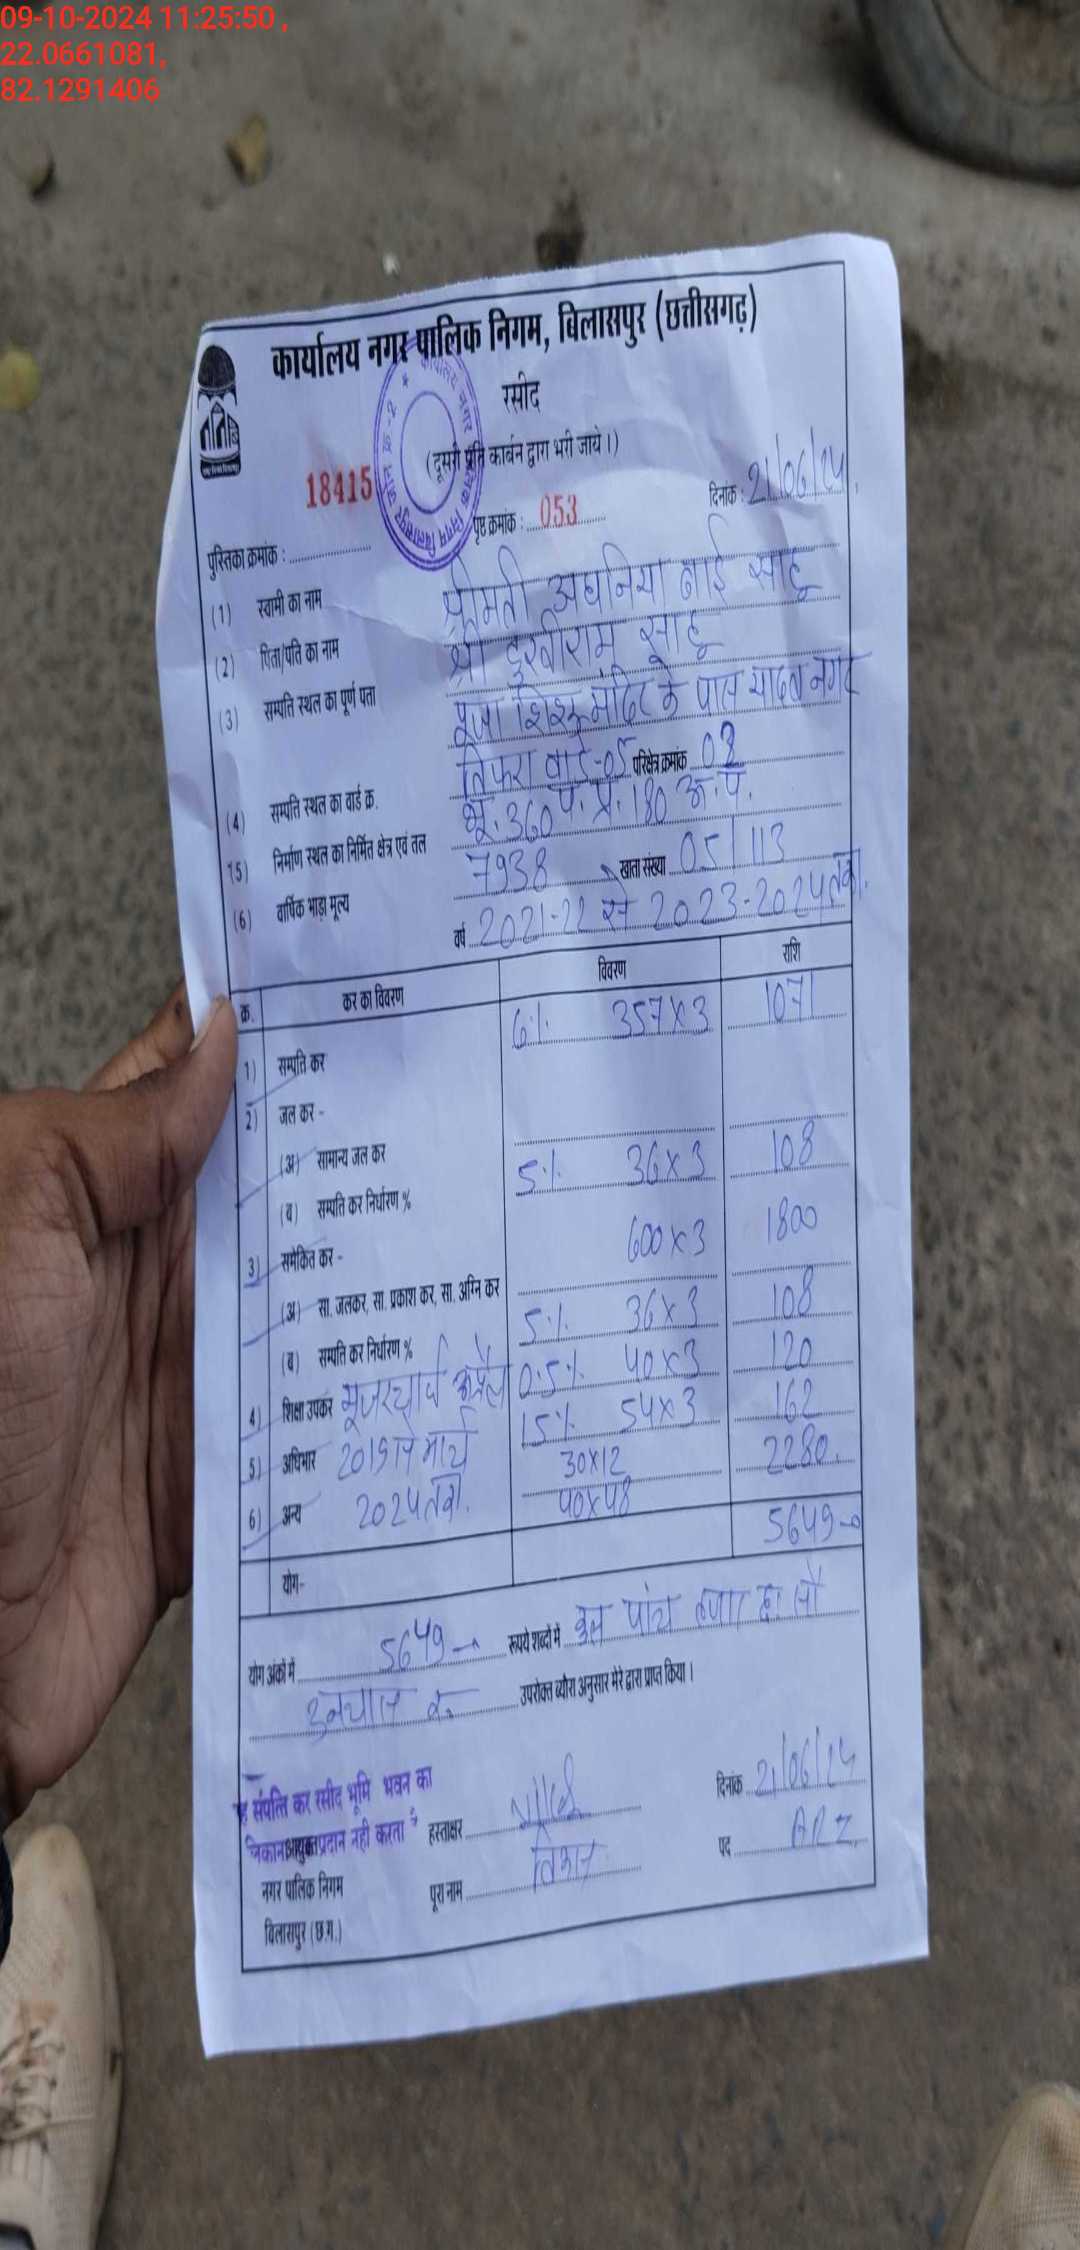 09-10-2024 11:25:50 ,
22.0661081,
82.1291406
कार्यालय नगर पालिक निगम, बिलासपुर (छत्तीसगढ़)
रसीद
(दूसरी प्रति कार्बन द्वारा भरी जाये।)
पुस्तिका क्रमांक : 18415 पृष्ठ क्रमांक : 053 दिनांक : 21/06/24
(1) स्वामी का नाम श्रीमती अघनिया बाई साहू
(2) पिता/पति का नाम श्री दुखीराम साहू
(3) सम्पति स्थल का पूर्ण पता पूजा शिशु मंदिर के पास यादव नगर
(4) सम्पति स्थल का वार्ड क्र. तिफरा वार्ड-05 परिक्षेत्र क्रमांक 02
(5) निर्माण स्थल का निर्मित क्षेत्र एवं तल भू. 360 प. प्र. 180 अ. प.
(6) वार्षिक भाड़ा मूल्य 7938 खाता संख्या 05/113
वर्ष 2021-22 से 2023-2024 तक.
क्र. कर का विवरण विवरण राशि
1) सम्पति कर 6% 357x3 1071
2) जल कर -
(अ) सामान्य जल कर
(ब) सम्पति कर निर्धारण % 5% 36x3 108
3) समेकित कर - 600x3 1800
(अ) सा. जलकर, सा. प्रकाश कर, सा. अग्नि कर
(ब) सम्पति कर निर्धारण % 5% 36x3 108
4) शिक्षा उपकर यूजरचार्ज अप्रैल 0.5% 40x3 120
5) अधिभार 2019 से मार्च 15% 54x3 162
6) अन्य 2024 तक. 30x12 2280.
40x48
योग- 5649-0
योग अंकों में 5649 रूपये शब्दों में कुल पांच हजार छः सौ
उनचास रु. उपरोक्त ब्यौरा अनुसार मेरे द्वारा प्राप्त किया।
संपत्ति कर रसीद भूमि भवन का दिनांक 21/06/24
प्रदान नही करता है हस्ताक्षर पद ARI
आयुक्त
नगर पालिक निगम पूरा नाम
बिलासपुर (छ.ग.)